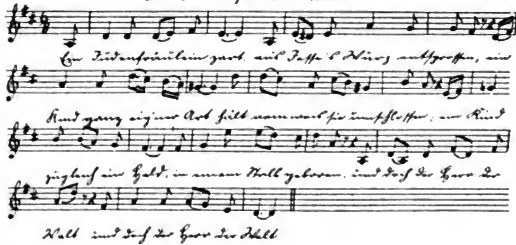 Ein Judenfräulein zart aus Jesse's Wurz entsprossen, ein
Kind ganz eigner Art hält sie umschlossen; ein Kind
zugleich ein Held, in einem Stall geboren, und doch der Herr der
Welt und doch der Herr der Welt